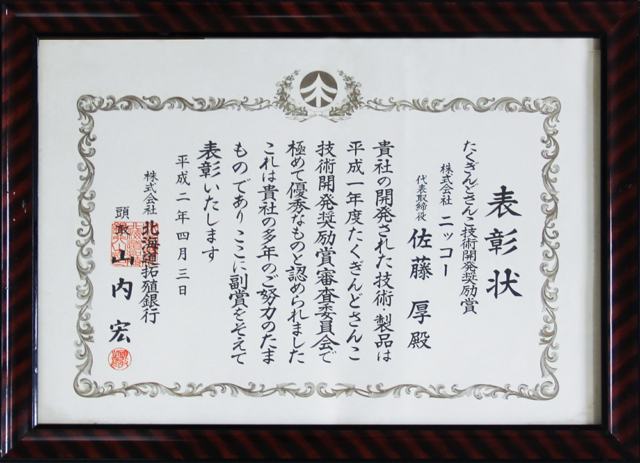 表彰状
たくぎんどさんこ技術開発奨励賞
株式会社 ニッコー
代表取締役 佐藤 厚 殿
貴社の開発された技術・製品は
平成一年度たくぎんどさんこ
技術開発奨励賞審査委員会で
極めて優秀なものと認められました
これは貴社の多年のご努力のたま
ものであり ここに副賞をそえて
表彰いたします
平成二年四月三日
株式会社 北海道拓殖銀行
頭取 山内 宏